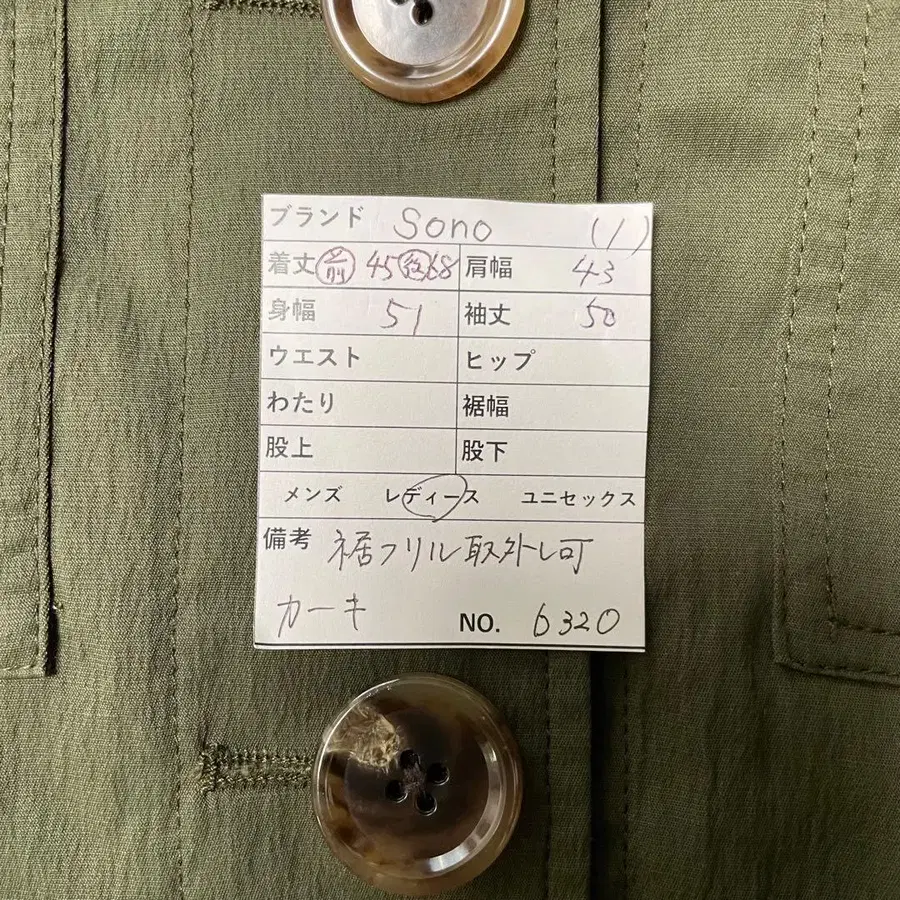 ブランド Sono (1)
着丈 前 45 後 68 肩幅 43
身幅 51 袖丈 50
ウエスト ヒップ
わたり 裾幅
股上 股下
メンズ レディース ユニセックス
備考 裾フリル取外し可
カーキ NO. 6320